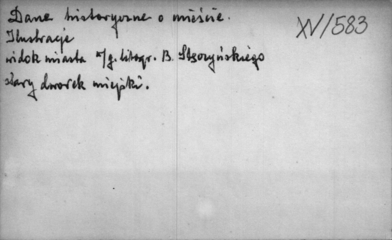 Dane historyczne o mieście.
XV/583
Ilustracje
widok miasta w/g. litogr. B. Stęczyńskiego
stary dworek miejski.